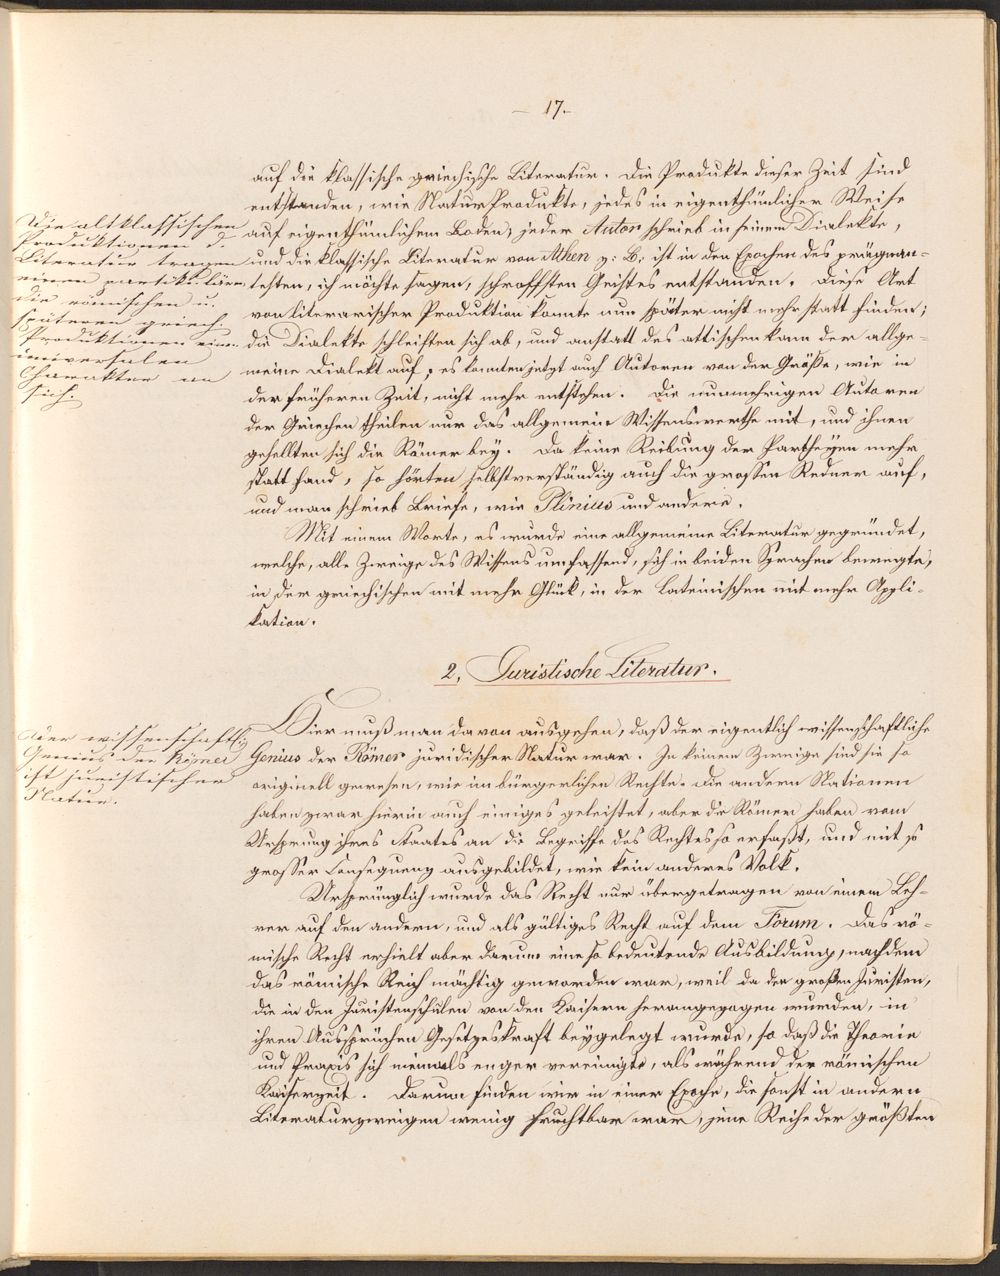 - 17. -
auf die klassische griechische Literatur. Die Produkte dieser Zeit sind
entstanden, wie Natur Produkte, jedes in eigenthümlicher Weise
auf eigenthümlichem Boden, jeder Autor schrieb in seinem Dialekte,
und die klassische Literatur von Athen z: B: ist in den Epochen des prägnan-
testen, ich möchte sagen, schroffsten Geistes entstanden. Diese Art
von literarischer Produktion konnte nun später nicht mehr statt finden;
die Dialekte schleiften sich ab, und anstatt des attischen kam der allge-
meine Dialekt auf; es konnten jetzt auch Autoren von der Größe, wie in
der früheren Zeit, nicht mehr entstehen. Die nunmehrigen Autoren
der Griechen theilen nur das allgemein Wissenswerthe mit, und ihnen
gesellten sich die Römer bey. Da keine Reibung der Partheyen mehr
statt fand, so hörten selbstverständig auch die grossen Redner auf,
und man schrieb Briefe, wie Plinius und andere.
Mit einem Worte, es wurde eine allgemeine Literatur gegründet,
welche, alle Zweige des Wissens umfassend, sich in beiden Sprachen bewegte,
in der griechischen mit mehr Glück, in der Lateinischen mit mehr Appli-
kation.
Die altklassischen
Produktionen d.
Literatur tragen
einen partikulären,
die römischen u.
späteren griech.
Produktionen einen
universalen
Charakter an
sich.
2, Juristische Literatur.
Hier muß man davon ausgehen, daß der eigentlich wissenschaftliche
Genius der Römer juridischer Natur war. In keinem Zweige sind sie so
originell gewesen, wie im bürgerlichen Rechte. Die andern Nationen
haben zwar hierin auch einiges geleistet, aber die Römer haben vom
Ursprung ihres Staates an die Begriffe des Rechtes so erfaßt, und mit so
grosser Consequenz ausgebildet, wie kein anderes Volk.
Ursprünglich wurde das Recht nur übergetragen von einem Leh-
rer auf den andern, und als gültiges Recht auf dem Forum. Das rö-
mische Recht erhielt aber darum eine so bedeutende Ausbildung, nachdem
das römische Reich mächtig geworden war, weil da den großen Juristen,
die in den Juristenschulen von den Kaisern herangezogen wurden, in
ihren Aussprüchen Gesetzeskraft beygelegt wurde, so daß die Theorie
und Praxis sich niemals enger vereinigte, als während der römischen
Kaiserzeit. Darum finden wir in einer Epoche, die sonst in andern
Literaturzweigen wenig fruchtbar war, jene Reihe der größten
Der wissenschaftl:
Genius der Römer
ist juristischer
Natur.